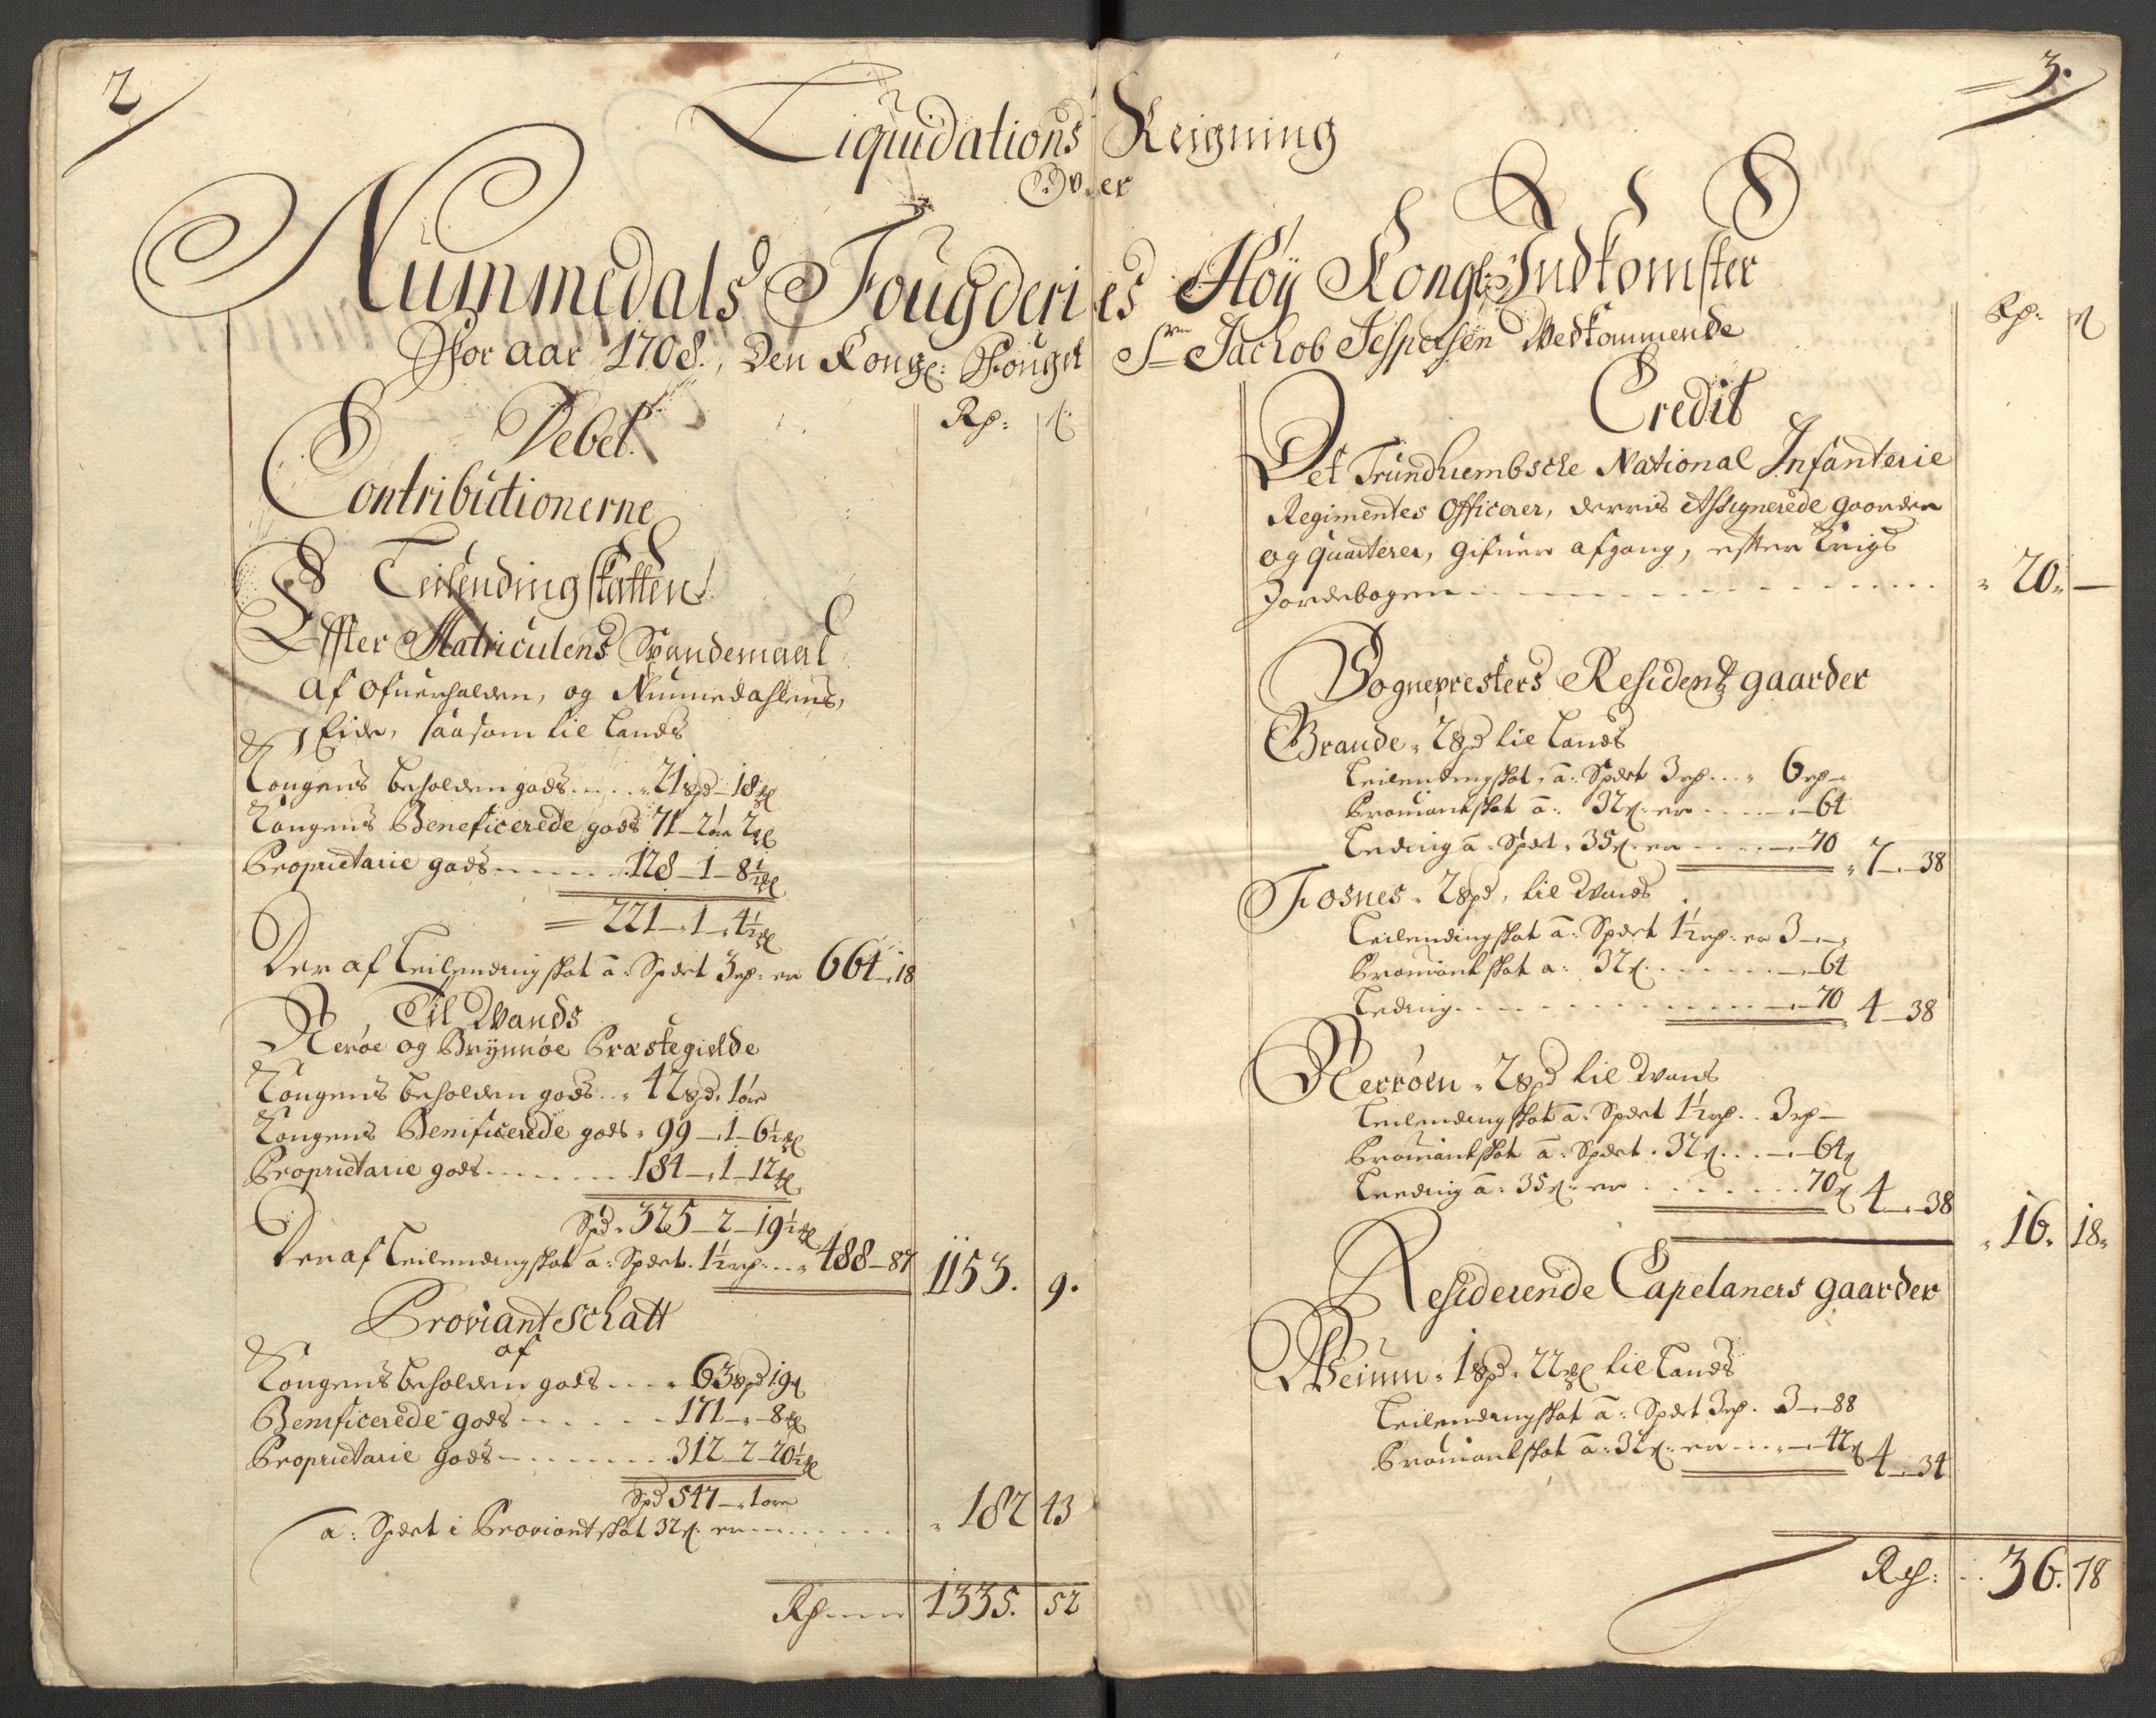 2
3.
Liquidations Reigning
Over
Nummedals Fougderies Høy Kongl: Indkomster
For aar 1708., Den Kongl: Fouget Sr Jachob Jespersen Vedkommende
Debet
Rp:
Contributionerne
Leilending skatten
Effter Matriculens Spandemaal
af Ofuerhalden, og Nummedahlens,
Eide, saasom til Lands
Kongens beholden gods . . . . 21 spd - 18
Kongens Beneficerede gods 71 - 2 ør 2
Proprietarie gods . . . . . . . 128 - 1 - 8½
221 - 1 - 4½
Der af Leilending skat a: Spdet 3 rp: er 664 - 18
Til Vands
Nerøe og Brynnøe Præstegielde
Kongens beholden gods . . 42 spd. 1 øre
Kongens Benificerede gods 99 - 1 - 6½
Proprietarie gods . . . . . . . 184 - 1 - 12
Spd 325 - 2 - 19½
Der af Leilending skat a: Spdet. 1½ rp: . . 488 - 87 1153. 9.
Proviant Schatt
af
Kongens beholden gods . . . 63 spd 19
Benificerede gods . . . . . . 171 - - 8
Proprietarie gods . . . . . . . 312 - 2 - 20½
Spd 547 - 1 øre
a: Spdet i Proviant skat 32 : er . . . . . . . . 182 43
Rp 1335. 52
Rp:
Credit
Det Trundhiembsche National Infanterie
Regimentes Officerer, derris Assignerede gaarder
og quarterer, gifuer afgang, efter Krigs
Jordebogen . . . . . . . . . . . . . . . . 20. -
Sognepresters Residentz gaarder
Brande. 2 spd til Lands
Leilendingskat, a: Spdet 3 rp . . . 6 rp -
Proviantskat a: 32 : er . . . . - 64
Leding a: Spdet. 35 : er . . . . . - 70 7 - 38
Fosnes. 2 spd, til Vands
Leilendingskat a: Spdet 1½ rp: er 3 - -
Proviantskat a: 32 . . . . . . - 64
Leding . . . . . . . . . . . . . . - 70 4 - 38
Nerröen. 2 spd til Vands
Leilendingskat a: Spdet 1½ rp . . 3 rp -
Proviantskat a: Spdet. 32 . . . - 64
Leeding a: 35 : er . . . . . . . . 70 4 - 38
16. 18.
Residerende Capelaners gaarder
1 spd. 22 til Lands
Leilendingskat a: Spdet 3 rp. 3 - 88
Proviantskat a: 32 : er . . . . - 42 4 - 34
Rp: . . 36. 78